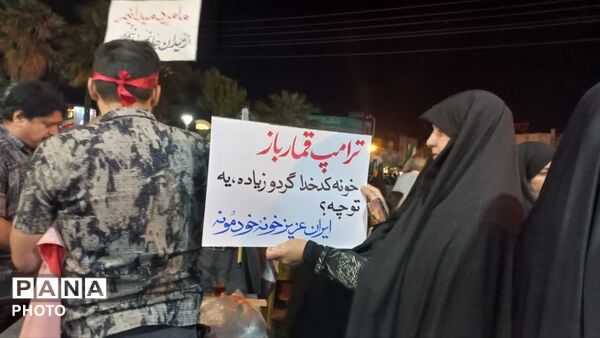 ترامپ قمارباز
خونه کدخدا گردو زیاده، یه
تو چه؟
ایران عزیز خونه خودمونه
PANA
PHOTO